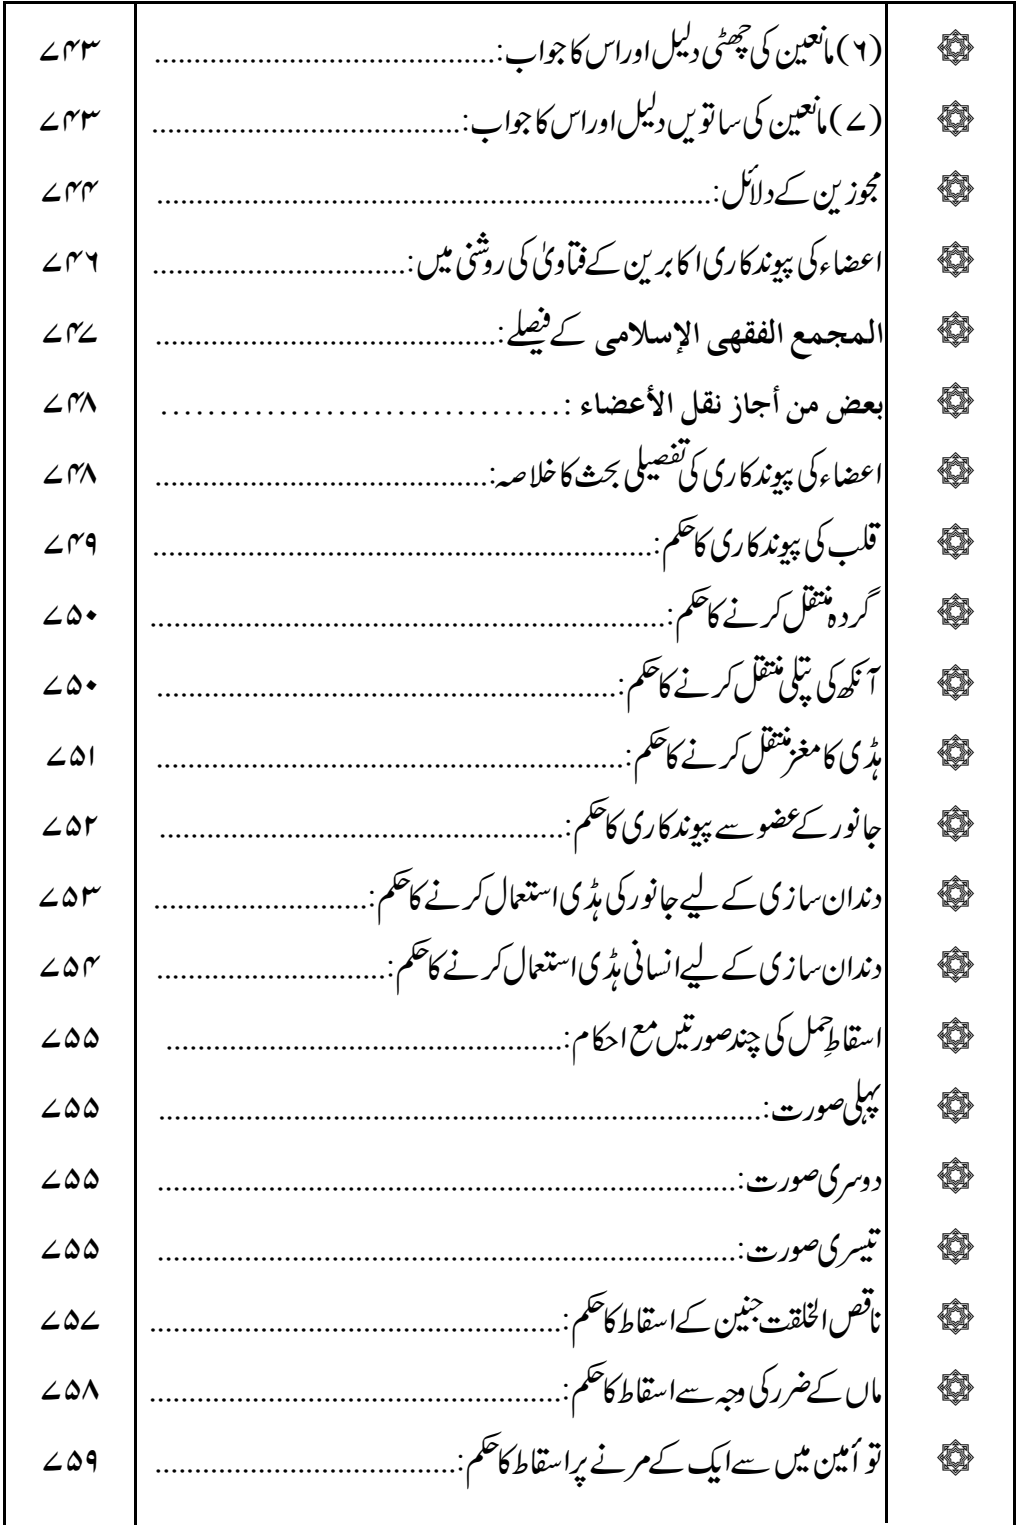 (۶) مانعین کی چھٹی دلیل اور اس کا جواب:........................................... ۷۴۳
(۷) مانعین کی ساتویں دلیل اور اس کا جواب:....................................... ۷۴۳
مجوزین کے دلائل:...................................................................... ۷۴۴
اعضاء کی پیوندکاری اکابرین کے فتاویٰ کی روشنی میں:................................ ۷۴۶
المجمع الفقهی الإسلامی کے فیصلے:........................................... ۷۴۷
بعض من أجاز نقل الأعضاء :.................................. ۷۴۸
اعضاء کی پیوندکاری کی تفصیلی بحث کا خلاصہ:.......................................... ۷۴۸
قلب کی پیوندکاری کا حکم:............................................................... ۷۴۹
گردہ منتقل کرنے کا حکم:................................................................. ۷۵۰
آنکھ کی پتلی منتقل کرنے کا حکم:.......................................................... ۷۵۰
ہڈی کا مغز منتقل کرنے کا حکم:........................................................... ۷۵۱
جانور کے عضو سے پیوندکاری کا حکم:................................................... ۷۵۲
دندان سازی کے لیے جانور کی ہڈی استعمال کرنے کا حکم:........................... ۷۵۳
دندان سازی کے لیے انسانی ہڈی استعمال کرنے کا حکم:............................. ۷۵۴
اسقاطِ حمل کی چند صورتیں مع احکام:.................................................. ۷۵۵
پہلی صورت:............................................................................ ۷۵۵
دوسری صورت:......................................................................... ۷۵۵
تیسری صورت:......................................................................... ۷۵۵
ناقص الخلقت جنین کے اسقاط کا حکم:.................................................... ۷۵۷
ماں کے ضرر کی وجہ سے اسقاط کا حکم:.................................................... ۷۵۸
توأمین میں سے ایک کے مرنے پر اسقاط کا حکم:...................................... ۷۵۹